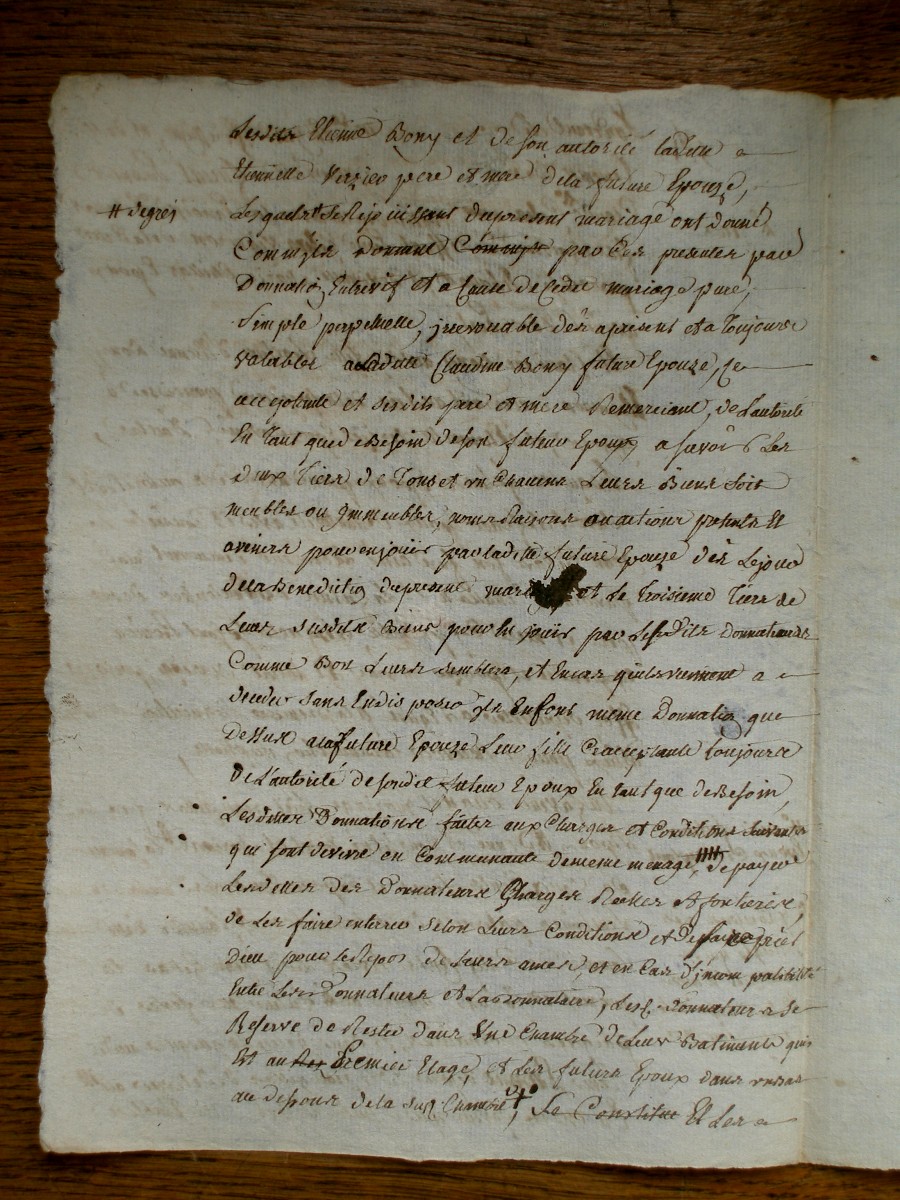 Lesdits Etienne Bony et de son autorité ladite
Etiennette pere et mere dela future Epouze,
# degrés
Lesquels se Rejouissant dupresent mariage ont donné
Comme ils donnent par Ces presentes par
Donnation Entrevif et a Cause de Cedit mariage pure,
Simple perpetuelle, jrrevocable dés apresent et a Toujours
Valables a ladite Claudine Bony future Epouze, Ce
acceptante et sesdits pere et mere Remerciant, de L'autorité
En tant que deBesoin deson futeur Epoux a savoir Les
deux Tiers de Tous et un Chacuns Leurs Biens soit
meubles ou jmmeubles, noms Raisons ou actions presents Et
avenirs pour en jouir par ladite future Epouze dés Lejour
dela Benediction dupresent mariage et le Troisieme Tiers de
Leurs susdits Biens pour En jouir par Lesdits Donnateurs
Comme Bon Leurs semblera, et En cas quils viennent a
deceder sans En disposer jls En font même Donnation que
dessus a la future Epouze Leur fille Ce acceptante toujours
de L'autorité desondit futeur Epoux En tant que de Besoin,
Lesdittes Donnations faites aux Charges et Conditions suivantes
qui sont devivre en Communauté dememe menage, de payer
Les dettes des Donnateurs Charges Réelles et foncieres,
de Les faire enterrer selon Leurs Conditions et de faire prier
Dieu pour le Repos de Leurs ames, et en Cas d'jncompatibilité
Entre Les Donnateurs et La Donnataire, Les Donnateurs se
Reserve de Rester dans Une Chambre de Leur Batiments qui
Est au Premier Etage, et Les futurs Epoux dans
au dessous de la susd. Chambre, Se Constitue Et Les